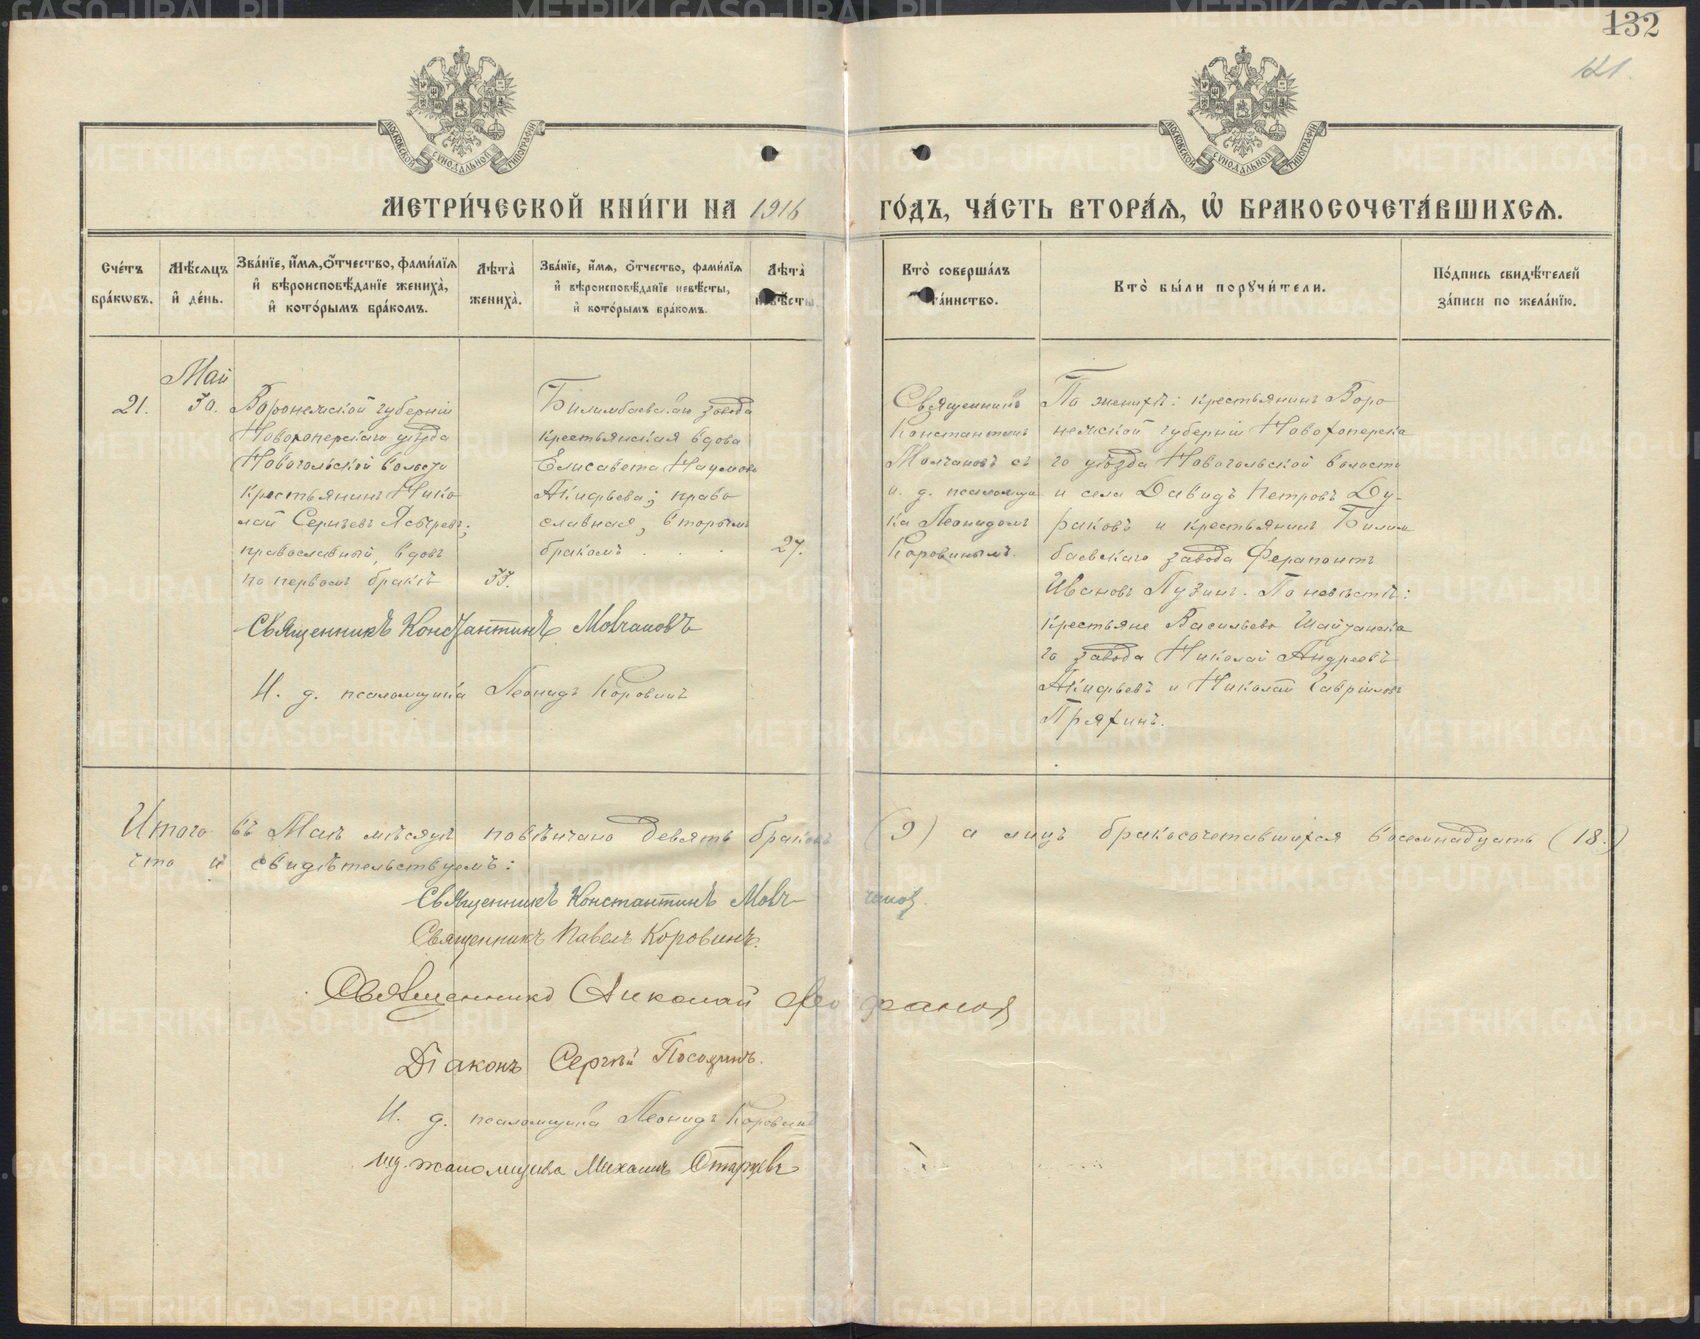 132
121.
МОСКОВСКОЙ СУНОДАЛЬНОЙ ТИПОГРАФИИ
МОСКОВСКОЙ СУНОДАЛЬНОЙ ТИПОГРАФИИ
МЕТРИ́ЧЕСКОЙ КНИ́ГИ НА 1916
ГО́ДЪ, ЧА́СТЬ ВТОРА́Я, Ѡ БРАКОСОЧЕТА́ВШИХСЯ.
Сче́тъ бра́кѡвъ.
Мѣ́сяцъ и де́нь.
Зва́нїе, и́мя, о́тчество, фами́лїя и вѣроисповѣ́данїе жениха̀, и кото́рымъ бра́комъ.
Лѣта̀ жениха̀.
Зва́нїе, и́мя, о́тчество, фами́лїя и вѣроисповѣ́данїе невѣ́сты, и кото́рымъ бра́комъ.
Лѣта̀ невѣ́сты.
Кто̀ соверша́лъ та́инство.
Кто̀ бы́ли поручи́тели.
По́дпись свидѣ́телей за́писи по жела́нїю.
Май
21.
30.
Воронежской губерніи
Новохоперскаго уѣзда
Новогольской волости
крестьянинъ Нико
лай Сергѣевъ
православный, вдовъ
по первомъ бракѣ
33.
Билимбаевскаго завода
крестьянская вдова
Елисавета Наумова
Акифьева; право
славная, вторымъ
бракомъ . . .
27.
Священникъ
Константинъ
Молчановъ съ
и. д. псаломщи
ка Леонидомъ
Коровинымъ.
По женихѣ: крестьянинъ Воро
нежской губерніи Новохоперска
го уѣзда Новогольской волости
и села Давидъ Петровъ Ду-
раковъ и крестьянинъ Билим
баевскаго завода Ферапонтъ
Ивановъ Пузинъ. По невѣстѣ:
крестьяне Васильево Шайтанска
го завода Николай Андреевъ
Акифьевъ и Николай Гавріиловъ
Пряхинъ.
Священникъ Константинъ Молчановъ
И. д. псаломщика Леонидъ Коровинъ
Итого въ Маѣ мѣсяцѣ повѣнчано девять браковъ (9) а лицъ бракосочетавшихся восемнадцать (18.)
что и свидѣтельствуемъ:
Священникъ Константинъ Молчановъ.
Священникъ Павелъ Коровинъ.
Священникъ Николай
Діаконъ Сергѣй
И. д. псаломщика Леонидъ Коровинъ
Михаилъ Старцевъ
METRIKI.GASO-URAL.RU